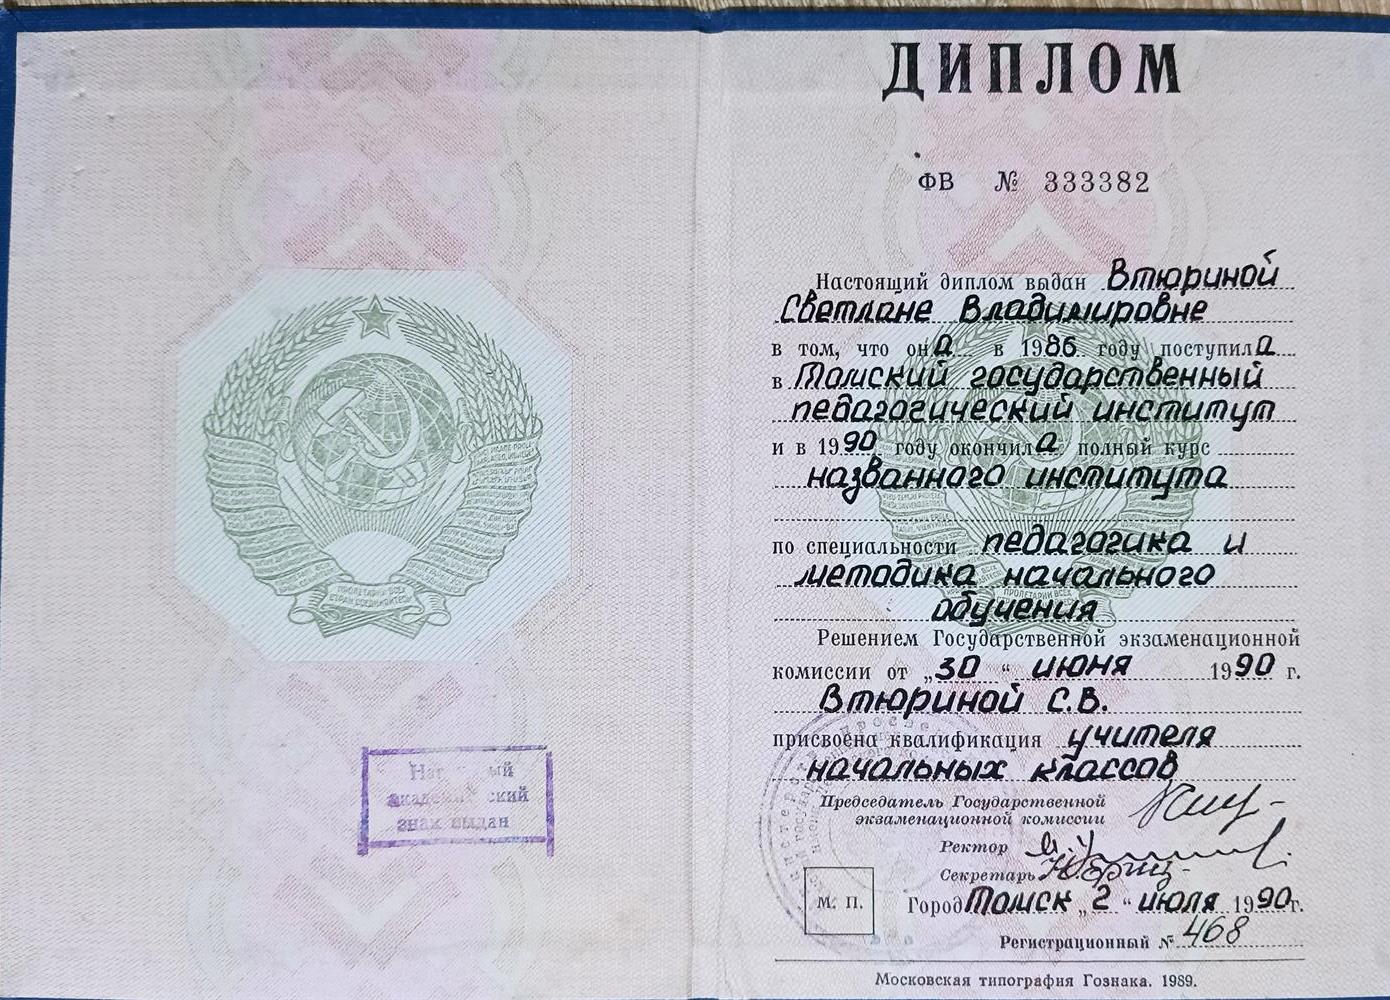 ДИПЛОМ
ФВ № 333382
Настоящий диплом выдан Втюриной
Светлане Владимировне
в том, что она в 1986 году поступила
в Томский государственный
педагогический институт
и в 1990 году окончила полный курс
названного института
по специальности педагогика и
методика начального
обучения
Решением Государственной экзаменационной
комиссии от „30“ июня 1990 г.
Втюриной С.В.
присвоена квалификация учителя
начальных классов
Председатель Государственной
экзаменационной комиссии
Ректор
Секретарь
М. П.
Город Томск „2“ июля 1990г.
Регистрационный № 468
Московская типография Гознака. 1989.
знак выдан
ПРОЛЕТАРИИ ВСЕХ
СТРАН СОЕДИНЯЙТЕСЬ